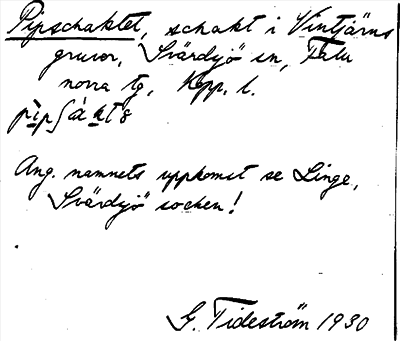 Pipschaktet, schakt i Vintjärns
gruvor, Svärdsjö sn, Falu
norra tg, Kopp. l.
pìpʃàktə
Ang. namnets uppkomst se Linge,
Svärdsjö socken!
G. Tideström 1930